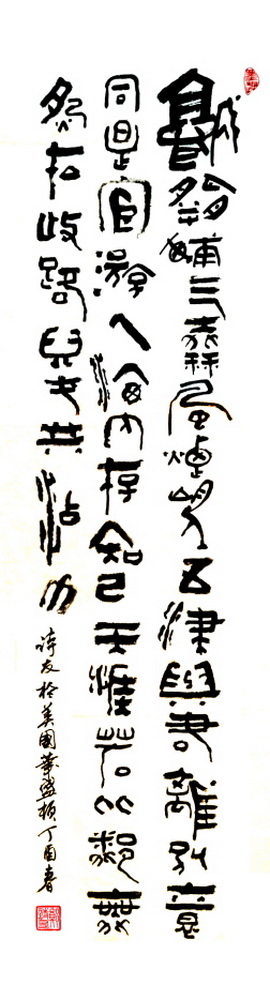 城闕輔三秦風煙望五津與君離別意
同是宦游人海内存知己天涯若比鄰無
為在歧路兒女共沾巾
詩友於美國華盛頓丁酉春